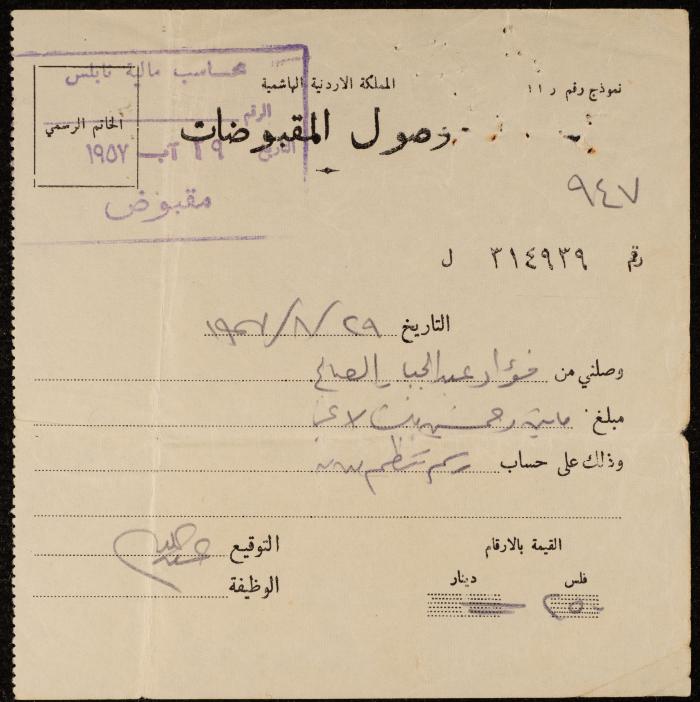 نموذج رقم ر ١١
المملكة الاردنية الهاشمية
محاسب مالية نابلس
الرقم
الخاتم الرسمي
وصول المقبوضات
التاريخ ٢٩ آب ١٩٥٧
مقبوض
٩٤٧
رقم ٣١٤٩٣٩ ل
التاريخ ٢٩/٨/١٩٥٧
وصلني من فؤاد عبد الجبار الصالح
مبلغ مايتين وخمسين فلس لا غير
وذلك على حساب رسم تنظيم
القيمة بالارقام
التوقيع
فلس دينار
الوظيفة
٢٥٠